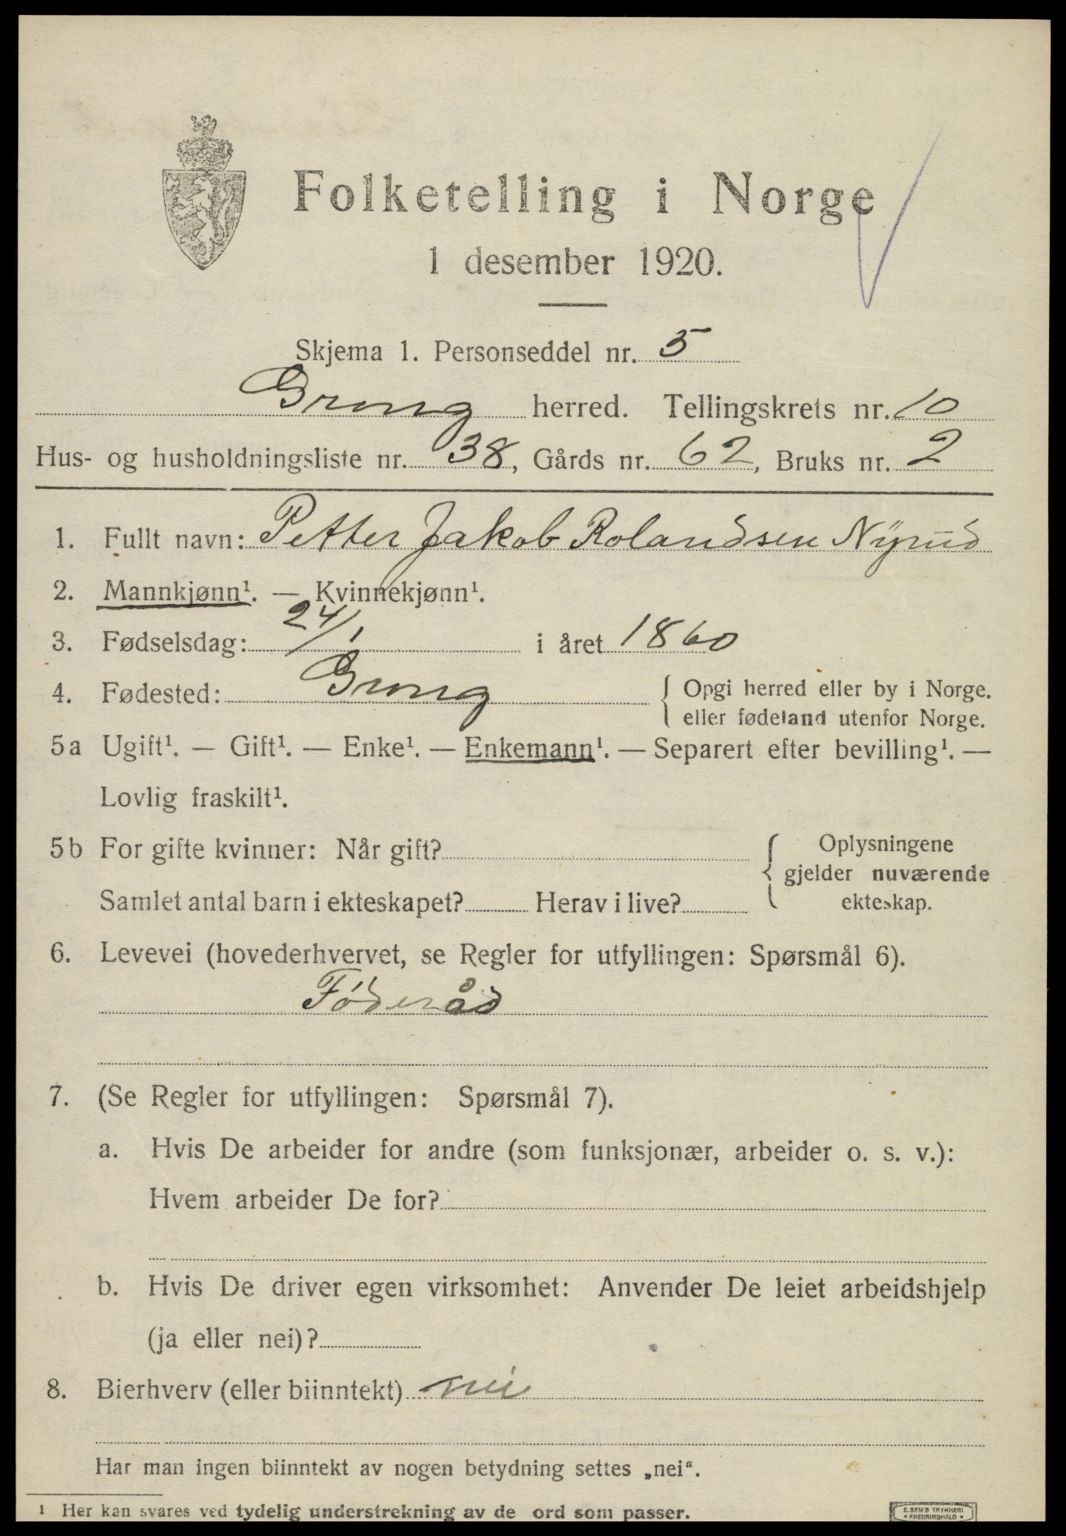 Folketelling i Norge
1 desember 1920.
Skjema 1. Personseddel nr. 5
Grong herred. Tellingskrets nr. 10
Hus- og husholdningsliste nr. 38, Gårds nr. 62, Bruks nr. 2
1. Fullt navn: Petter Jakob Rolandsen Nyrud
2. Mannkjønn¹. — Kvinnekjønn¹.
3. Fødselsdag: 24/1 i året 1860
4. Fødested: Grong { Opgi herred eller by i Norge.
eller fødeland utenfor Norge.
5a Ugift¹. — Gift¹. — Enke¹. — Enkemann¹. — Separert efter bevilling¹. —
Lovlig fraskilt¹.
5b For gifte kvinner: Når gift? { Oplysningene
gjelder nuværende
Samlet antal barn i ekteskapet? Herav i live? ekteskap.
6. Levevei (hovederhvervet, se Regler for utfyllingen: Spørsmål 6).
Föderåd
7. (Se Regler for utfyllingen: Spørsmål 7).
a. Hvis De arbeider for andre (som funksjonær, arbeider o. s. v.):
Hvem arbeider De for?
b. Hvis De driver egen virksomhet: Anvender De leiet arbeidshjelp
(ja eller nei)?
8. Bierhverv (eller biinntekt) nei
Har man ingen biinntekt av nogen betydning settes „nei“.
¹ Her kan svares ved tydelig understrekning av de ord som passer.
E. SEM'S TRYKKERI
FREDRIKSHALD